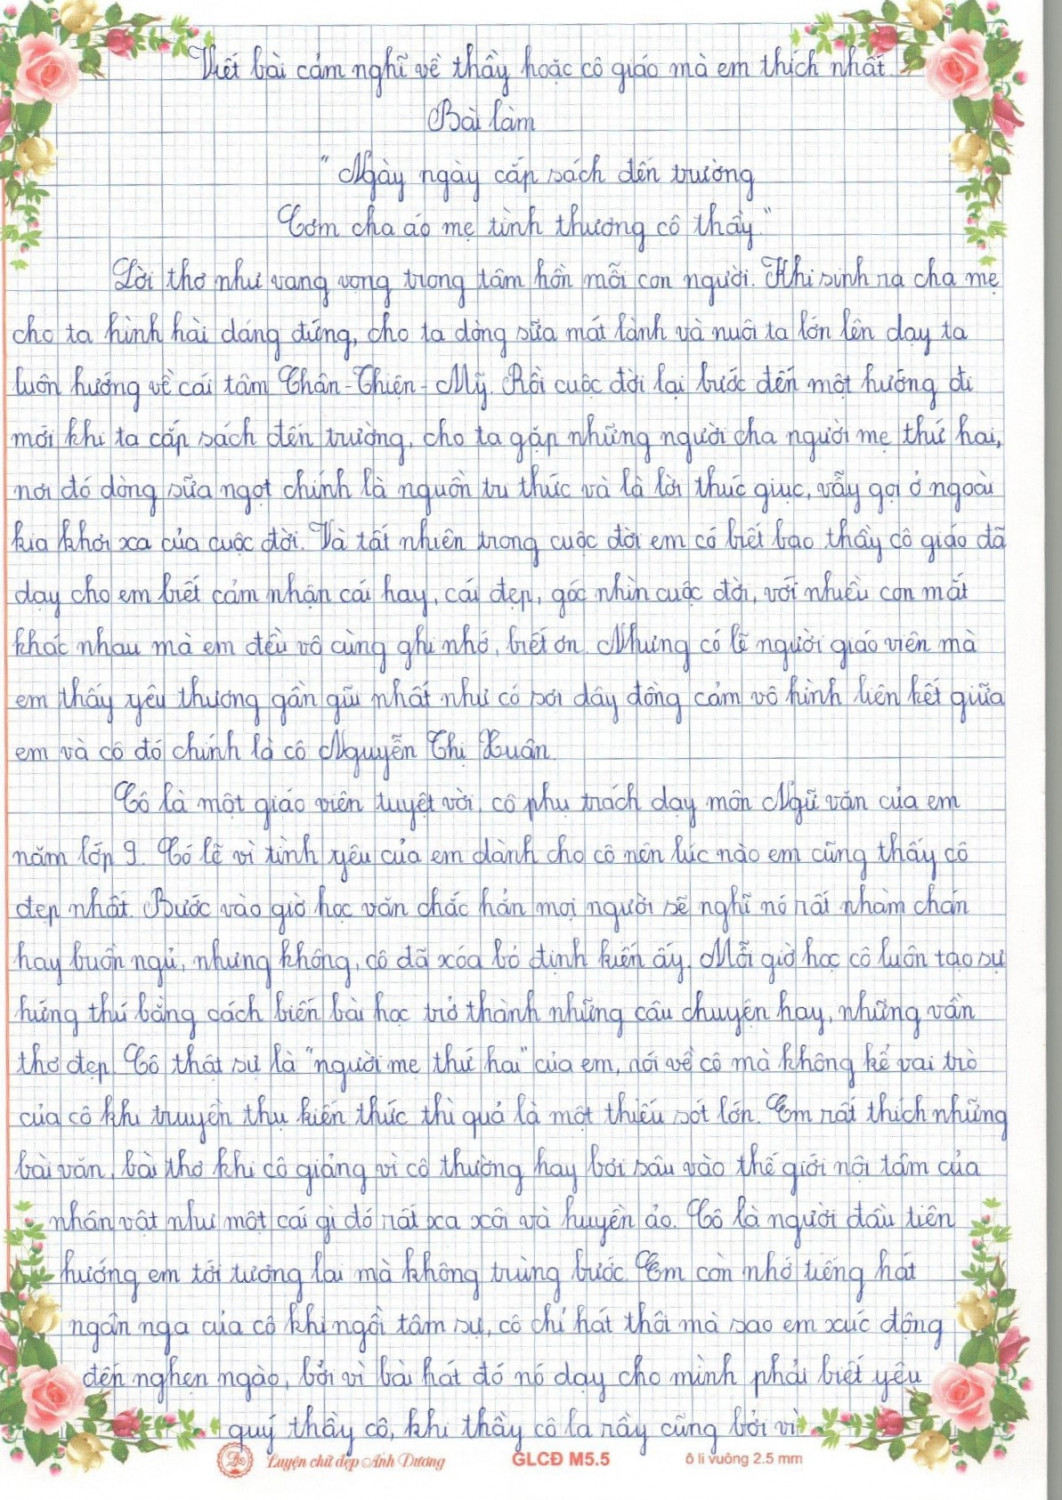 Viết bài cảm nghĩ về thầy hoặc cô giáo mà em thích nhất.
Bài làm
"Ngày ngày cắp sách đến trường
Cơm cha áo mẹ tình thương cô thầy"
Lời thơ như vang vọng trong tâm hồn mỗi con người. Khi sinh ra cha mẹ
cho ta hình hài dáng đứng, cho ta dòng sữa mát lành và nuôi ta lớn lên dạy ta
luôn hướng về cái tâm Chân - Thiện - Mỹ. Rồi cuộc đời lại bước đến một hướng đi
mới khi ta cắp sách đến trường, cho ta gặp những người cha người mẹ thứ hai,
nơi đó dòng sữa ngọt chính là nguồn tri thức và là lời thúc giục, vẫy gọi ở ngoài
kia khơi xa của cuộc đời. Và tất nhiên trong cuộc đời em có biết bao thầy cô giáo đã
dạy cho em biết cảm nhận cái hay, cái đẹp, góc nhìn cuộc đời, với nhiều con mắt
khác nhau mà em đều vô cùng ghi nhớ, biết ơn. Nhưng có lẽ người giáo viên mà
em thấy yêu thương gần gũi nhất như có sợi dây đồng cảm vô hình liên kết giữa
em và cô đó chính là cô Nguyễn Thị Xuân.
Cô là một giáo viên tuyệt vời, cô phụ trách dạy môn Ngữ văn của em
năm lớp 9. Có lẽ vì tình yêu của em dành cho cô nên lúc nào em cũng thấy cô
đẹp nhất. Bước vào giờ học văn chắc hẳn mọi người sẽ nghĩ nó rất nhàm chán
hay buồn ngủ, nhưng không, cô đã xóa bỏ định kiến ấy. Mỗi giờ học cô luôn tạo sự
hứng thú bằng cách biến bài học trở thành những câu chuyện hay, những vần
thơ đẹp. Cô thật sự là "người mẹ thứ hai" của em, nói về cô mà không kể vai trò
của cô khi truyền thụ kiến thức thì quả là một thiếu sót lớn. Em rất thích những
bài văn, bài thơ khi cô giảng vì cô thường hay bơi sâu vào thế giới nội tâm của
nhân vật như một cái gì đó rất xa xôi và huyền ảo. Cô là người đầu tiên
hướng em tới tương lai mà không trùng bước. Em còn nhớ tiếng hát
ngân nga của cô khi ngồi tâm sự, cô chỉ hát thôi mà sao em xúc động
đến nghẹn ngào, bởi vì bài hát đó nó dạy cho mình phải biết yêu
quý thầy cô, khi thầy cô la rầy cũng bởi vì
Luyện chữ đẹp Ánh Dương GLCĐ M5.5 ô li vuông 2.5 mm